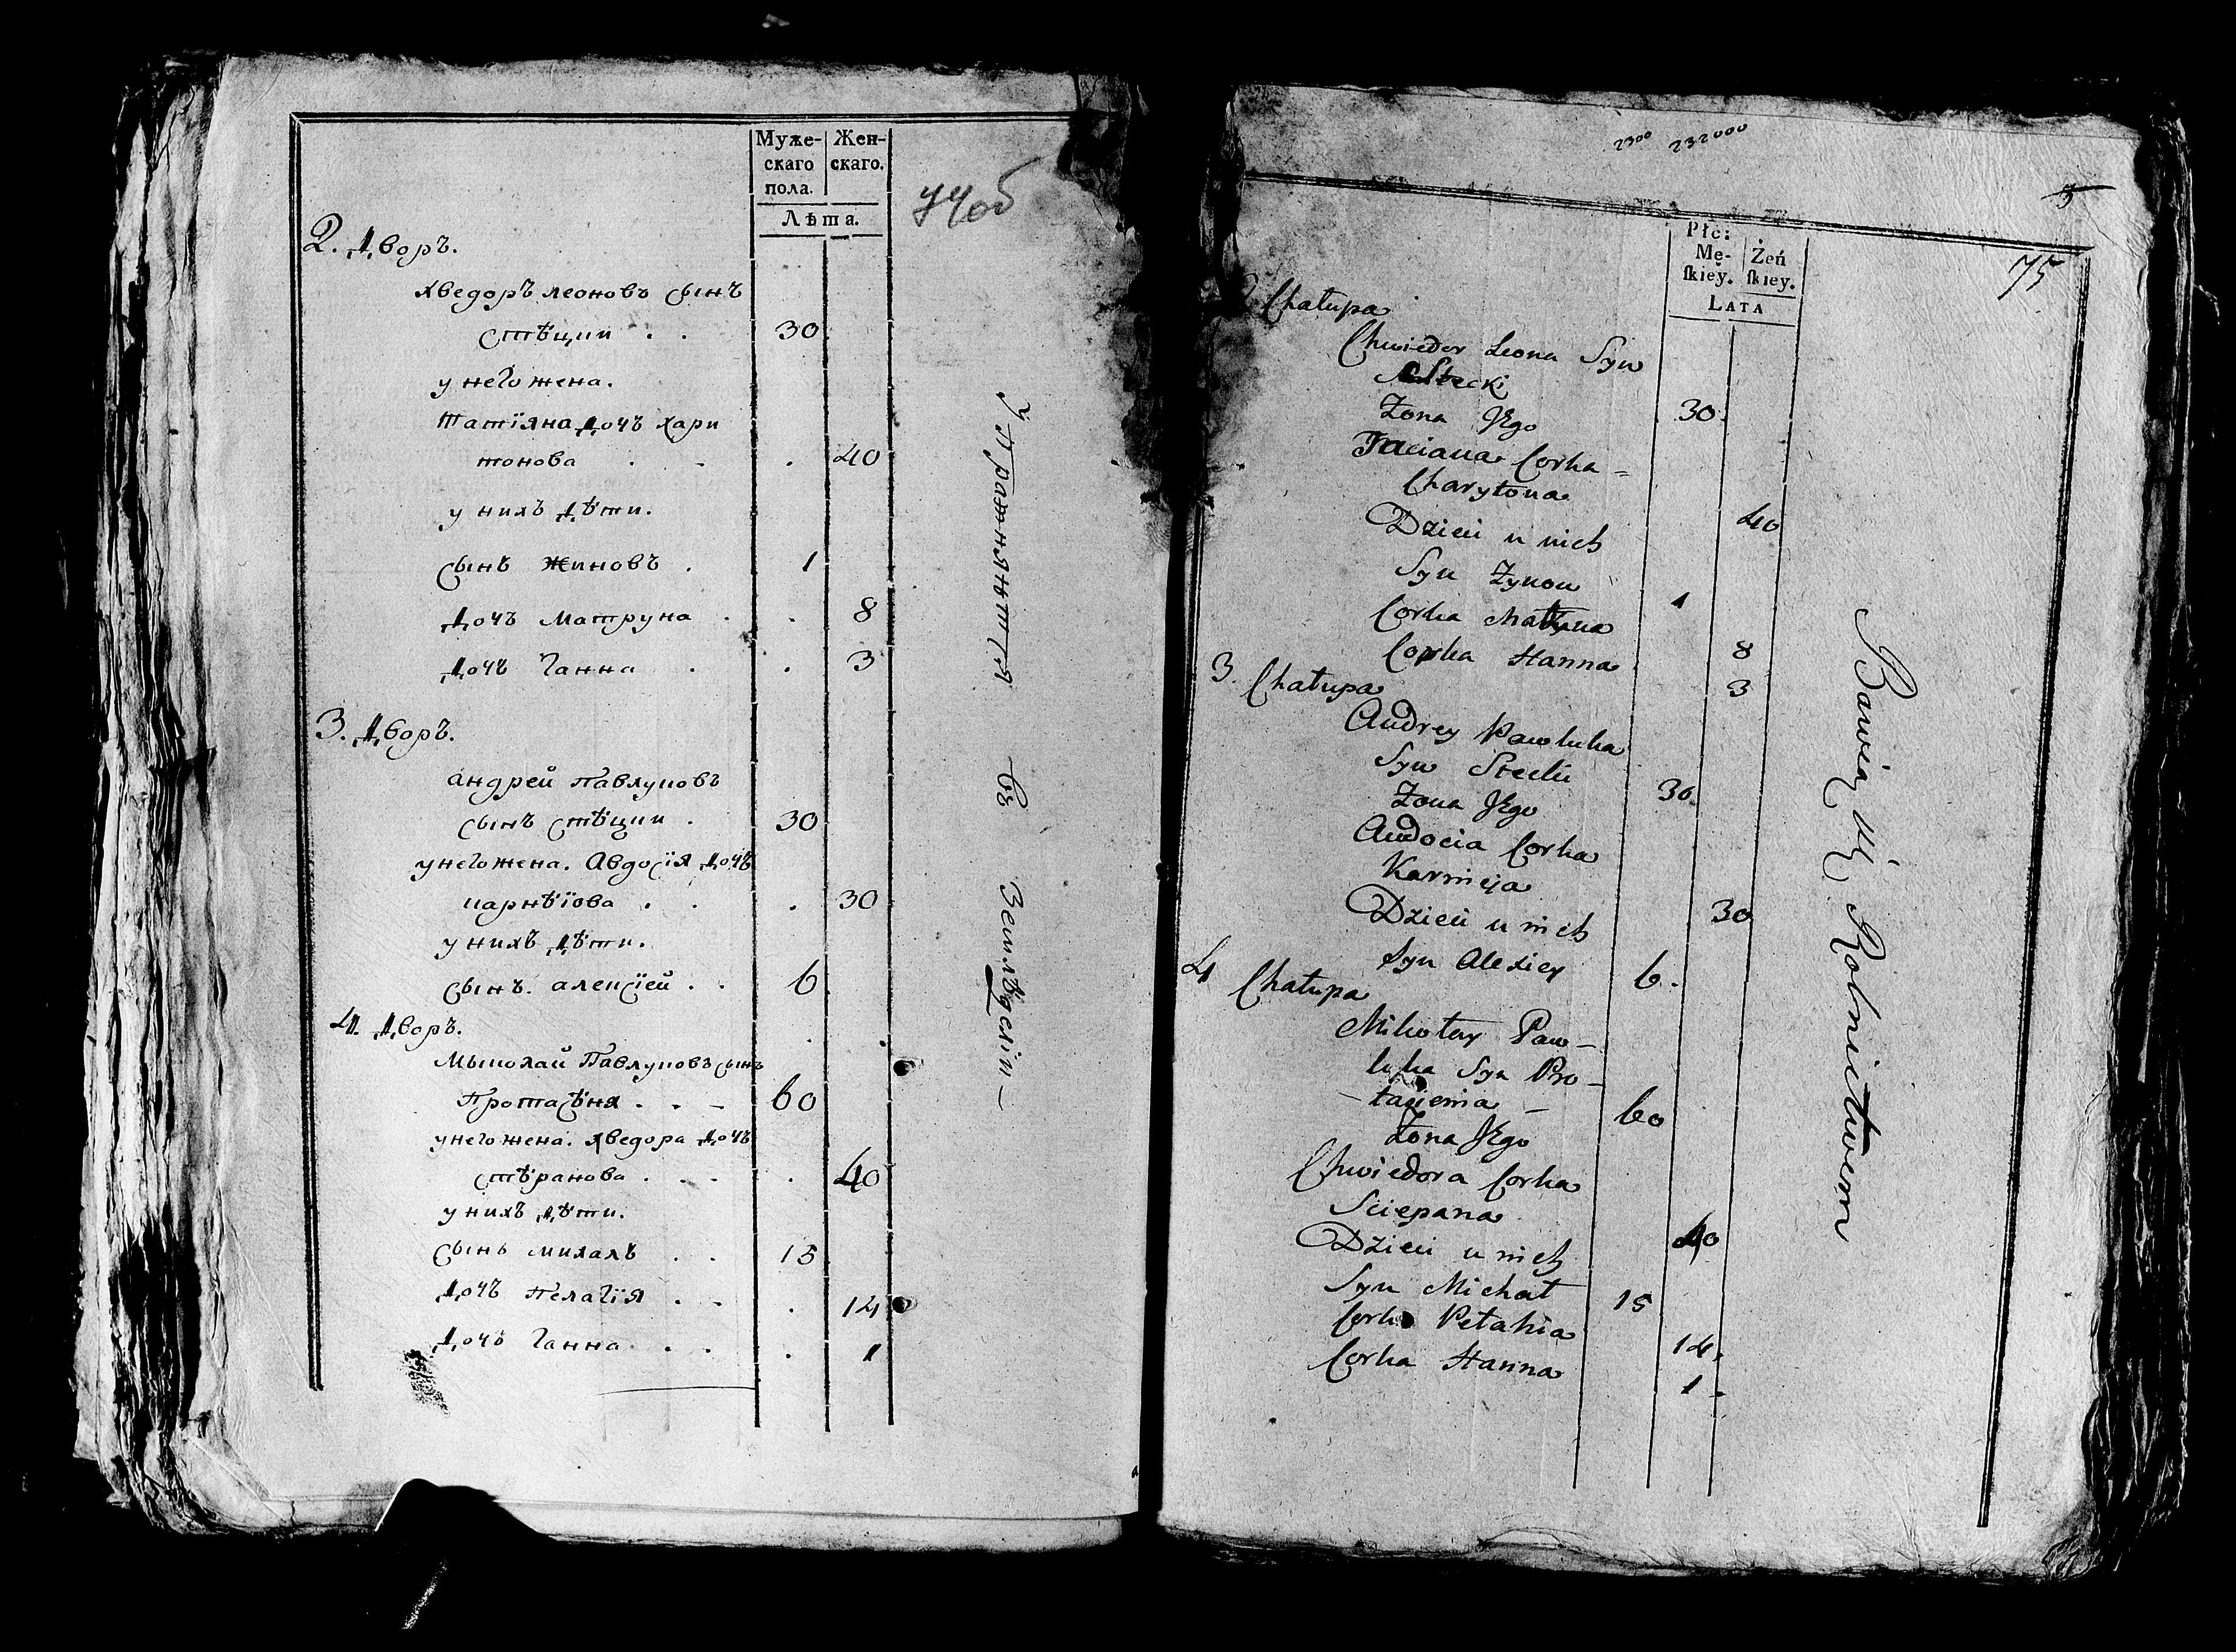 Муже-
скаго
пола.
Жен-
скаго.
Лѣта.
74об
2. Дворъ.
хведоръ леоновъ сынъ
стѣцки . . 30
у него жена.
татіяна дочъ хари
тонова . . . 40
у нихъ дѣти.
сынъ жиновъ . 1
дочъ матруна . . 8
дочъ Ганна . . 3
3. Дворъ.
андрей павлуковъ
сынъ стѣцки . 30
у него жена. Авдосія дочъ
карнѣіова . . . 30
у нихъ дѣти.
сынъ. алексіей . . 6
4. Дворъ.
мыколай павлуковъ сынъ
протасѣня . . – 60
у него жена. хведора дочъ
стѣпанова . . . . 40
у нихъ дѣти.
сынъ михалъ . . 15
дочъ пелагія . . . 14
дочъ Ганна . . . 1
Упражняются въ Земледеліи –
2300 232000
3
75
Płci
Mę-
ſkiey.
Żeń
ſkiey.
LATA
Chałupa
Chwiedor Leona Syn
Stecki
Zona Jego 30.
Taciana Corka =
Charytona
Dzieci u nich 40
Syn Zynon
Corka Matruna 1
Corka Hanna 8
3. Chałupa 3
Andrey Pawluka
Syn Stecki
Zona Jego 30.
Audocia Corka
Karnieja
Dzieci u nich 30
Syn Alexiey 6.
4 Chałupa
Mikołay Paw–
luka Syn Pro–
– tasienia – 60
Zona Jego
Chwiedora Corka
Sciepana
Dzieci u nich 40
Syn Michał 15
Corka Petahia
Corka Hanna 14.
1 -
Bawią się Rolnictwem